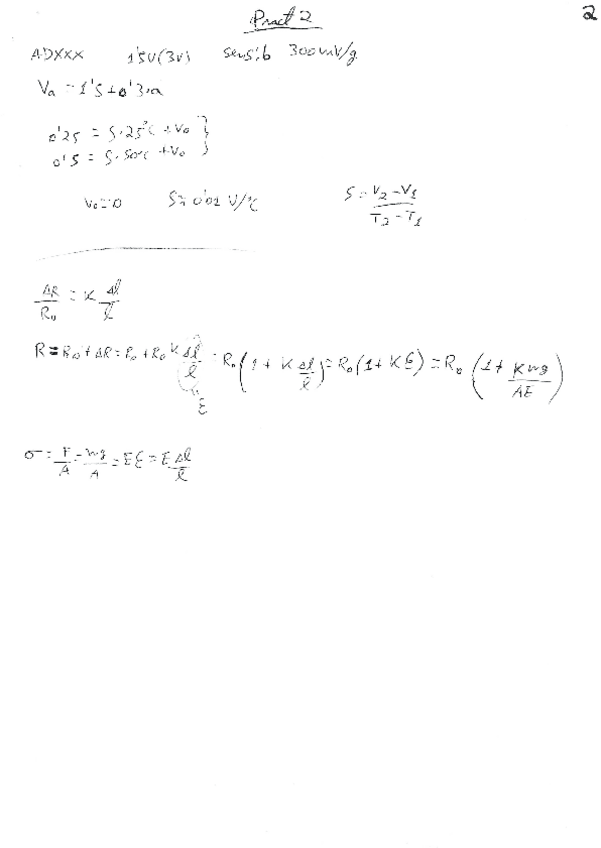 Pract 2
2
ADXXX 1'5V(3V) sensib 300mV/g
Va = 1'5 + 0'3·a
0'25 = S·25°C + V0 }
0'5 = S·50°C + V0 }
V0 = 0 S = 0'01 V/°C S = (V2 - V1)/(T2 - T1)
ΔR/R0 = K Δl/l
R = R0 + ΔR = R0 + R0 K Δl/l = R0 (1 + K Δl/l) = R0 (1 + K ε) = R0 (1 + K mg/AE)
ε
σ = F/A = mg/A = Eε = E Δl/l